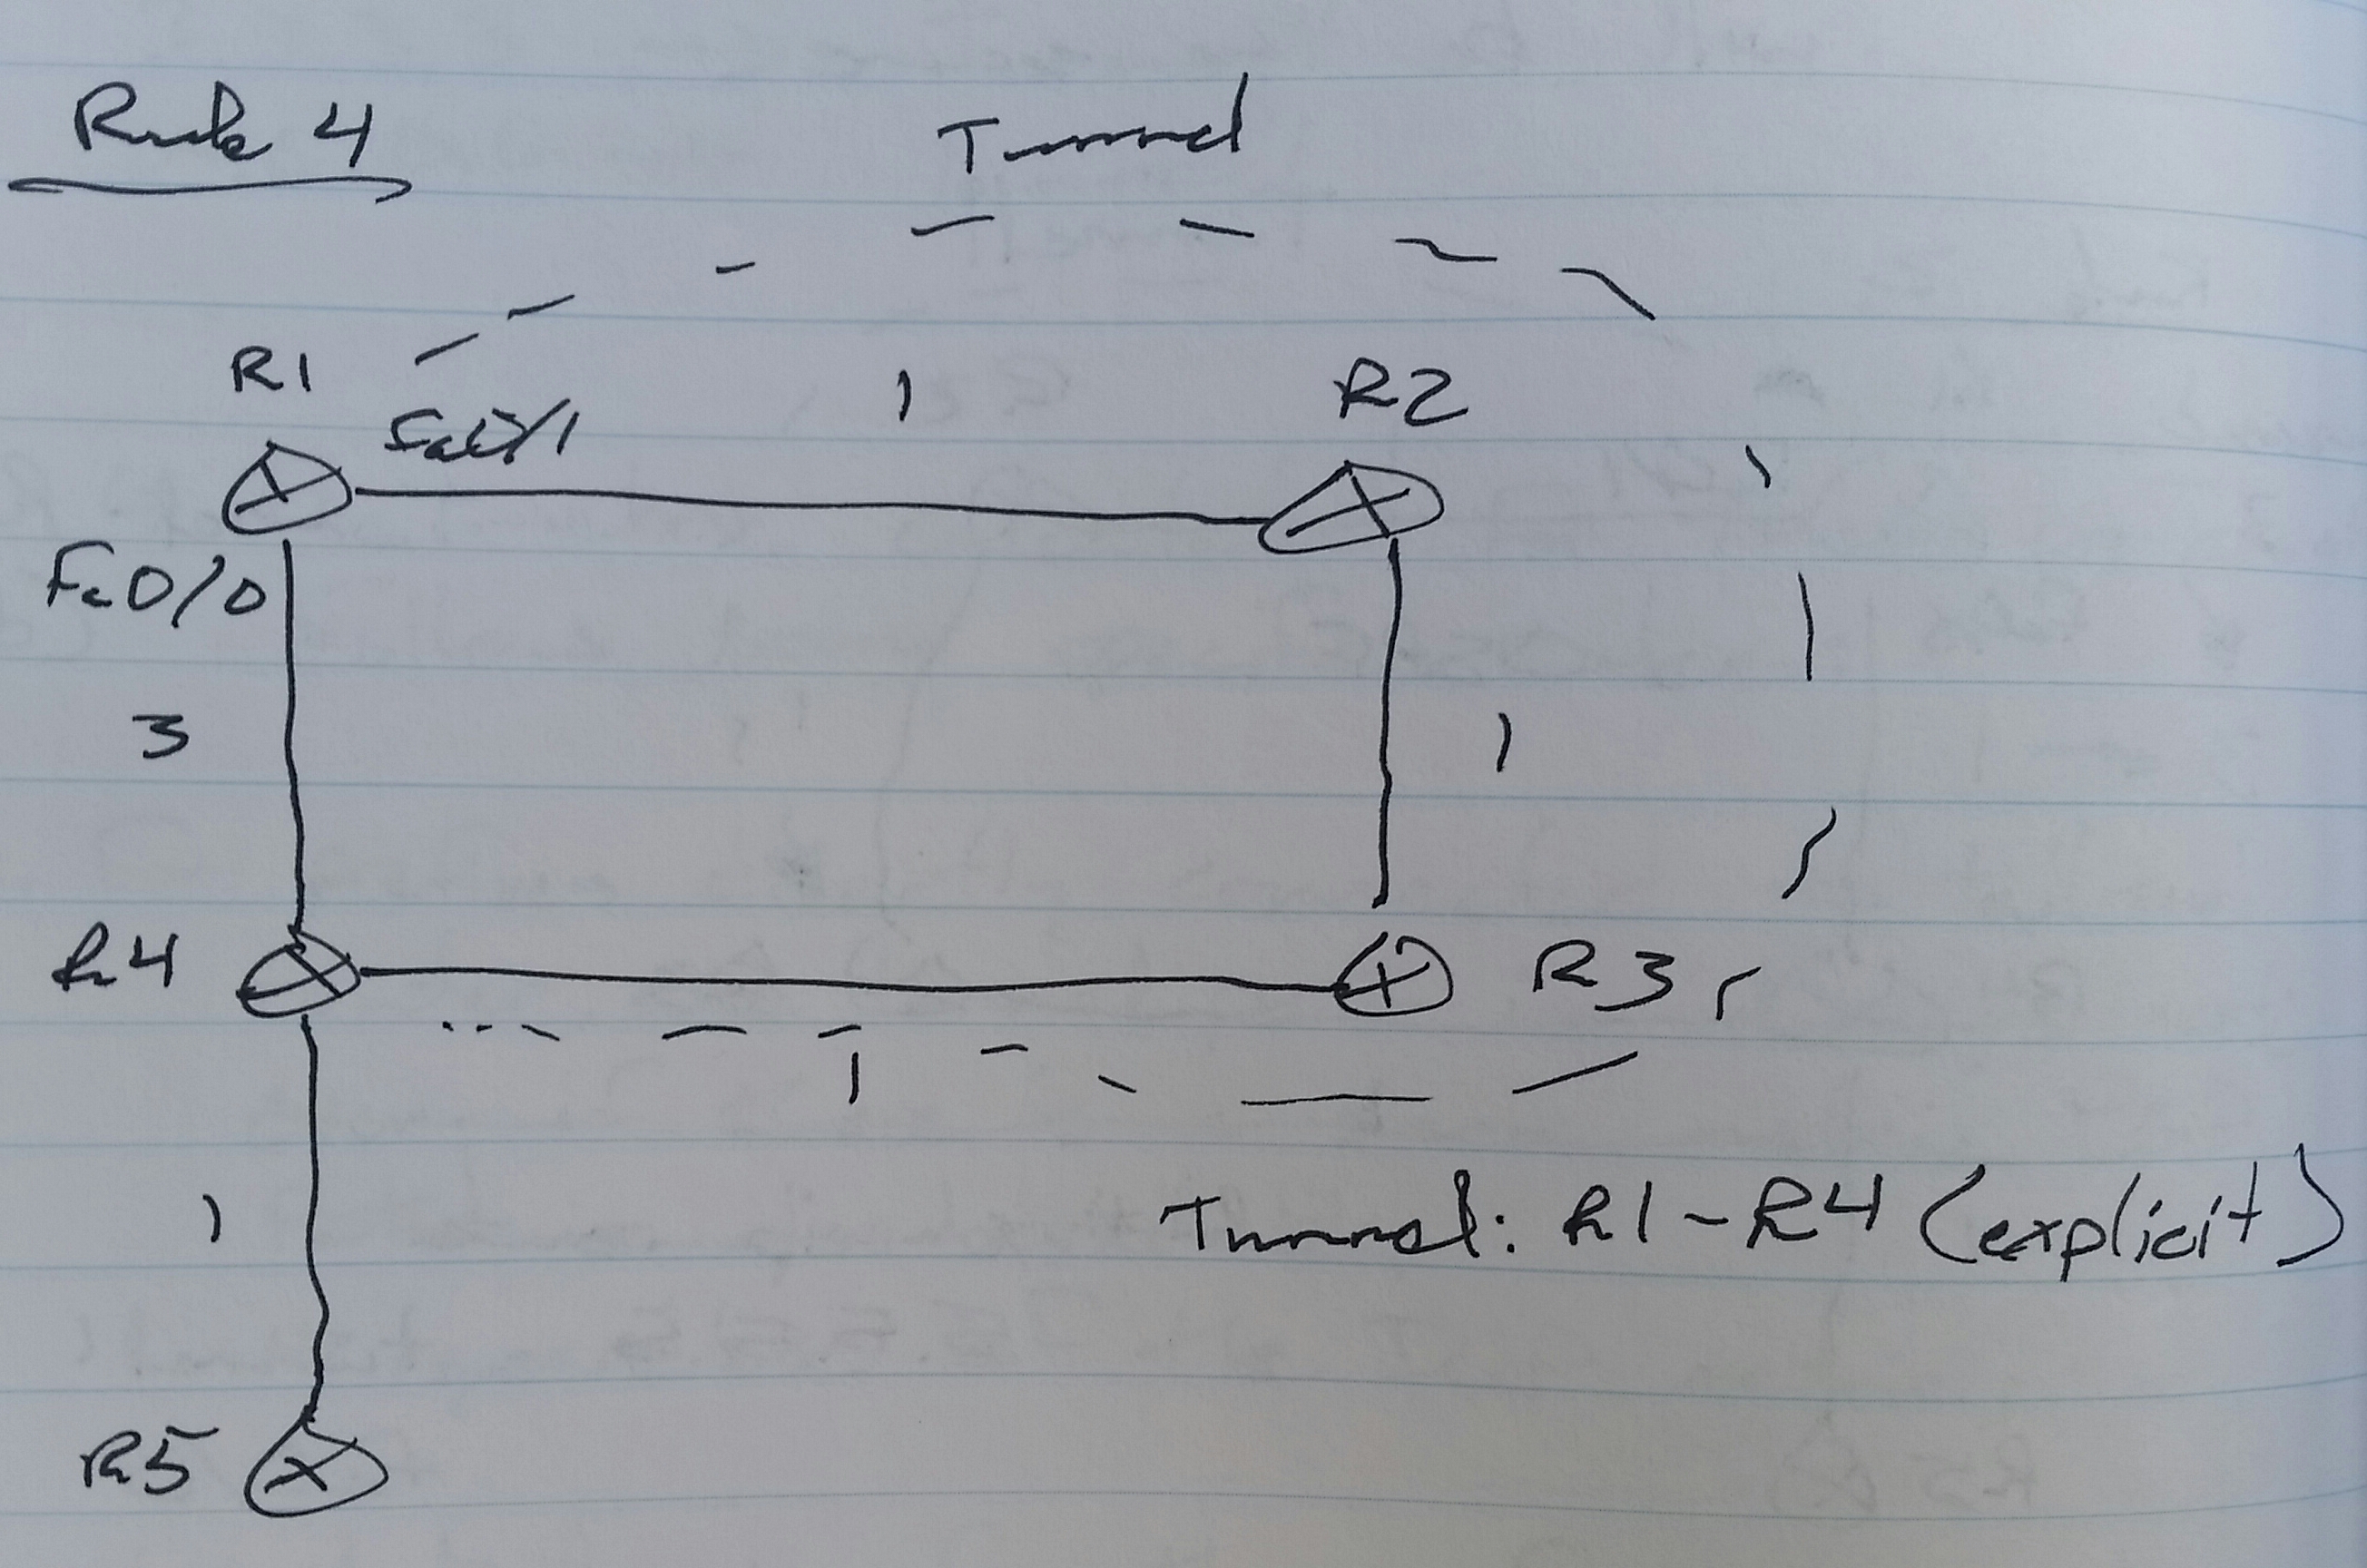 Rule 4
Tunnel
R1
1
R2
Fa0/1
Fa0/0
3
1
R4
R3
1
1
Tunnel: R1-R4 (explicit)
R5